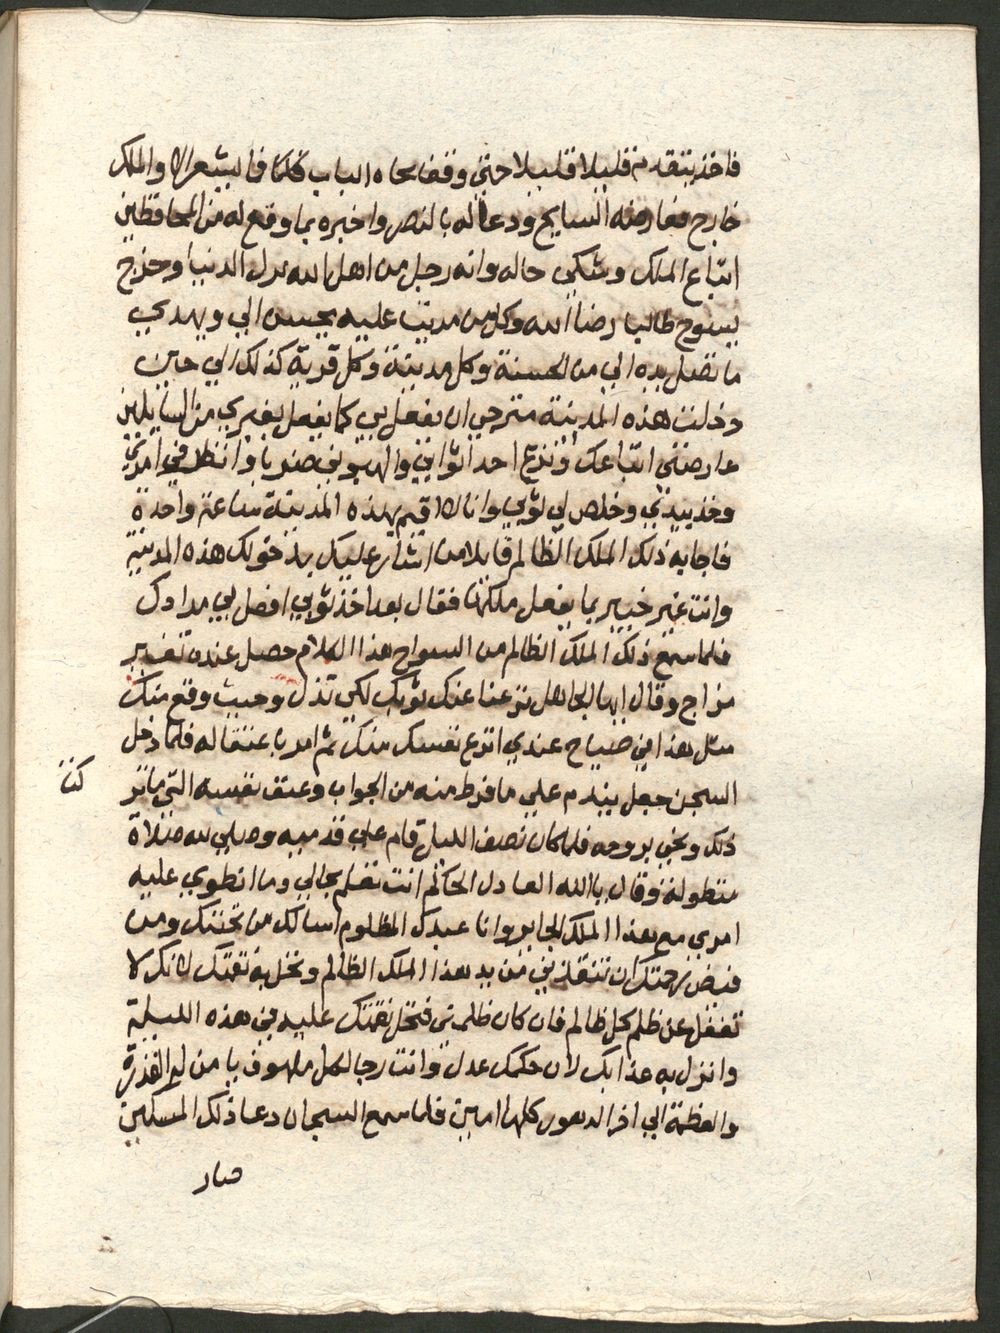 فاخذ يتقدم قليلا قليلا حتي وقف بحاه الباب فلما فاليشعر الا والملك
خارج فعارضه السايح ودعا له بالنصر واخبره بما وقع له من المحافظين
اتباع الملك وشكي حاله وانه رجل من اهل الله ترك الدنيا وخرج
يسوح طالبا رضا الله وكل من مريت عليه يحسن الي ويهدي
ما تصل يده الي من الحسنة وكل مدينة وكل قرية كذلك الي حين
دخلت هذه المدينة مترجي ان يفعل بي كما يفعل بغيري من السايلين
عارضتني اتباعك ونزع احد اثوابي والهبوني ضربا وانظر في امري
وخذ بيدي وخلص لي ثوبي وانا لا اقيم بهذه المدينة ساعة واحدة
فاجابه ذلك الملك الظالم قايلا من اشار عليك بدخولك هذه المدينة
وانت غير خبير بما يفعل ملكها فقال بعد اخذ ثوبي افصل بي مرادك
فلما سمع ذلك الملك الظالم من السواح هذا الكلام حصل عنده تغير
مزاج وقال ايها الجاهل نزعنا عنك ثوبك لكي تذل وحيث وقع منك
مثل هذا في صياح عندي انزع نفسك منك ثم امر باعتقاله فلما دخل
السجن جعل يندم علي ما فرط منه من الجواب وعنف نفسه التي ما تر
كنن
ذلك ونجي بروحه فلما كان نصف الليل قام علي قدميه وصلي لله صلاة
متطولة وقال يا الله العادل الحاكم انت تعلم بحالي وما انطوي عليه
امري مع هذا الملك الجاير وانا عبدك المظلوم اسالك من تحننك ومن
فيض رحمتك ان تنقذني من يد هذا الملك الظالم وتحل به نقمتك لانك لا
تغفل عن ظلم كل ظالم فان كان ظلمني فتحل نقمتك عليه في هذه الليلة
وانزل به عذابك لان حكمك عدل وانت رجا لكل ملهوف يا من له القدرة
والعظمة الي اخر الدهور كلها امين فلما سمع السجان دعا ذلك المسكين
صار